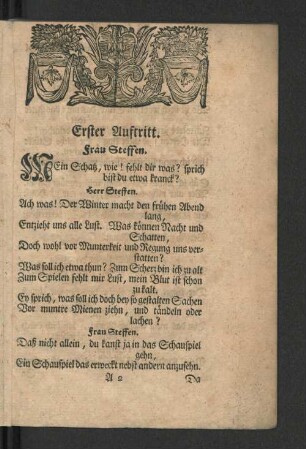 Erster Auftritt.
Frau Steffen.
MEin Schatz, wie! fehlt dir was? sprich
bist du etwa kranck?
Herr Steffen.
Ach was! Der Winter macht den frühen Abend
lang,
Entzieht uns alle Lust. Was können Nacht und
Schatten,
Doch wohl vor Munterkeit und Regung uns ver-
statten?
Was soll ich etwa thun? Zum Scherz bin ich zu alt
Zum Spielen fehlt mir Lust, mein Blut ist schon
zu kalt.
Ey sprich, was soll ich doch bey so gestalten Sachen
Vor muntre Mienen ziehn, und tändeln oder
lachen?
Frau Steffen.
Daß nicht allein, du kanst ja in das Schauspiel
gehn,
Ein Schauspiel das erweckt nebst andern anzusehn.
A
Da